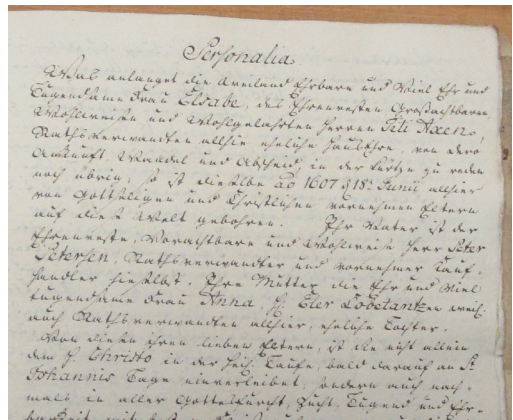 Personalia.
Was anlanget die Weiland Ehrbare und Viel Ehr und
Tugendsame Frau Elsabe, des Ehrenvesten Großachtbaren
Wohlweisen und Wohlgelahrten Herren Feti Axens,
Rathsverwandten allhie eheliche Haußehre, von dero
Ankunft, Wandel und Abscheid in der Kürtze zu reden
noch übrig, so ist dieselbe ao 1607 d 18. Junii allhier
von Gottseligen und Christlichen vornehmen Eltern
auf diese Welt gebohren. Ihr Vater ist der
Ehrenveste, Vorachtbare und Wohlweise Herr Peter
Petersen, Rathsverwandter und vornehmer Kauf
händler hieselbst. Ihre Mutter die Ehr und Viel
tugendsame Frau Anna, H. weil.
auch Rathsverwandten allhier, eheliche Tochter.
Von diesen ihren lieben Eltern, ist sie nicht allein
dem H. Christo in der Heil. Taufe, bald darauf an St.
Johannis Tage einverleibet, sondern auch nach-
mals in aller Gottesfurcht, Zucht, Tugend und Ehr-